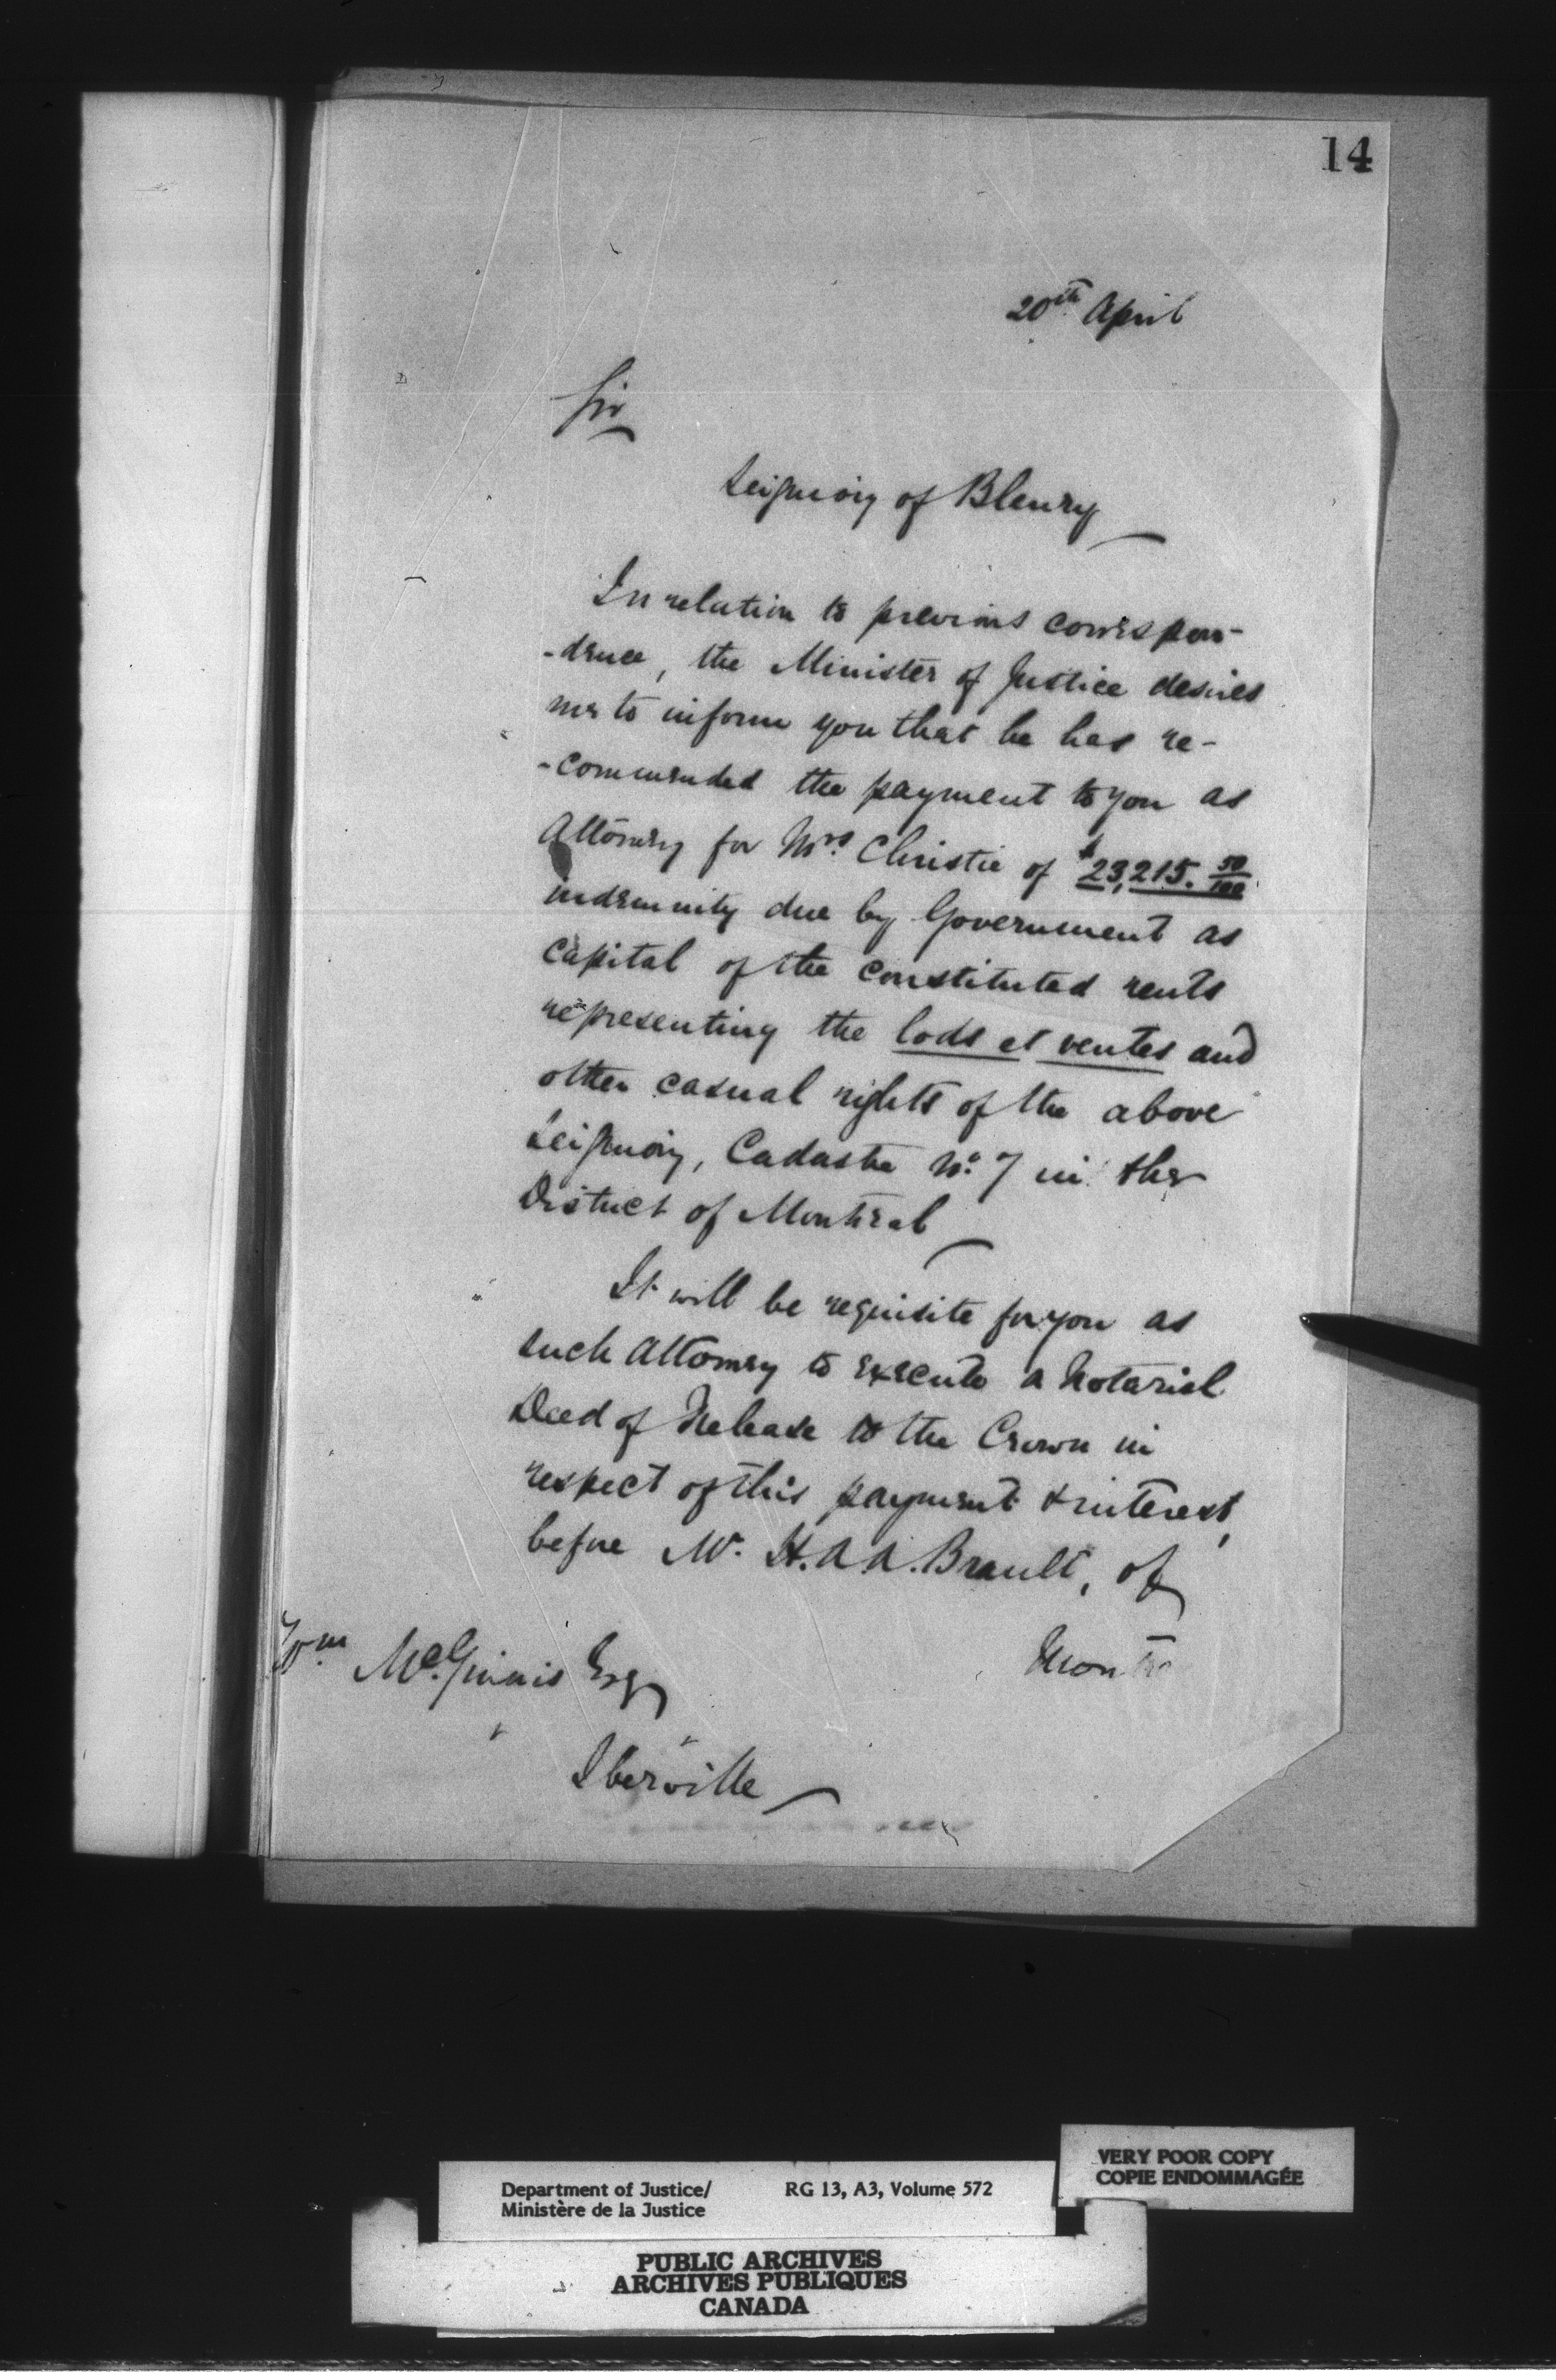 14
20th April
Sir
Seignory of Bleury
In relation to previous correspon-
-dence, the Minister of Justice desires
me to inform you that he has re-
-commended the payment to you as
Attorney for Mrs. Christie of $23,215. 50/100
indemnity due by Government as
Capital of the constituted rents
representing the lods et ventes and
other casual rights of the above
Seignory, Cadastre No. 7 in the
District of Montreal
It will be requisite for you as
such Attorney to execute a Notarial
Deed of Release to the Crown in
respect of this payment & interest,
before Mr. H.A.A. Brault, of
Montre
Wm. McGinnis Esq
Iberville
VERY POOR COPY
COPIE ENDOMMAGÉE
Department of Justice/ RG 13, A3, Volume 572
Ministère de la Justice
PUBLIC ARCHIVES
ARCHIVES PUBLIQUES
CANADA